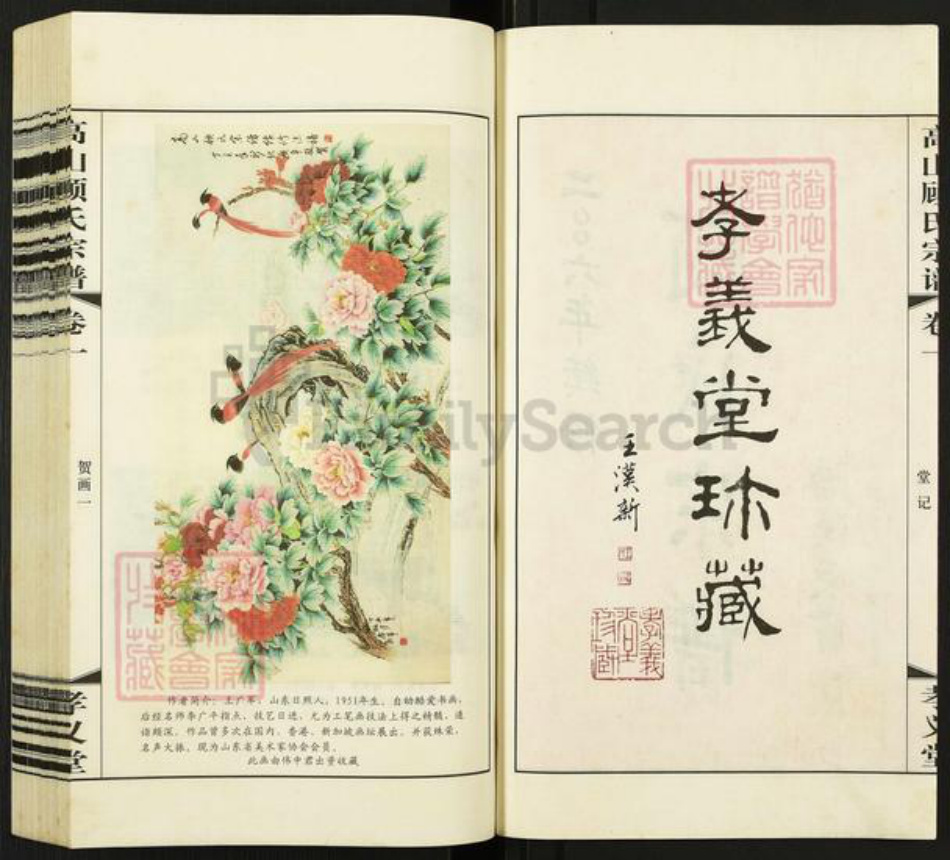 高山顾氏宗谱
卷一
贺画一
孝义堂
作者简介：王广军，山东日照人，1951年生。自幼酷爱书画，
后经名师李广平指点，技艺日进，尤为工笔画技法上得之精髓，造
诣颇深。作品曾多次在国内、香港、新加坡画坛展出，并获殊荣，
名声大振。现为山东省美术家协会会员。
此画由伟中君出资收藏
FamilySearch
孝義堂珍藏
王漢新
孝義堂珍藏
高山顾氏宗谱
卷一
堂记
孝义堂